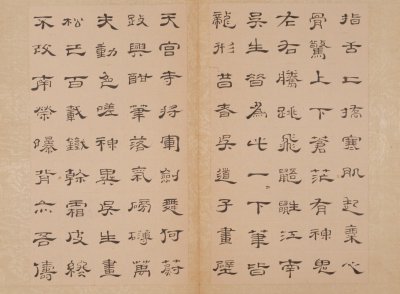 指舌上撟寒肌起粟心
骨驚上下蒼茫有神鬼
左右騰跳飛鼯鼪江南
吳生為此一下筆皆
龍形昔吳道子畫壁
天宮寺將軍劍舞何蔚
跂興酣筆落氣磅礴萬
夫動色嗟神異吳生畫
松已百載鐵幹霜皮終
不改南榮曝背亦吾儔